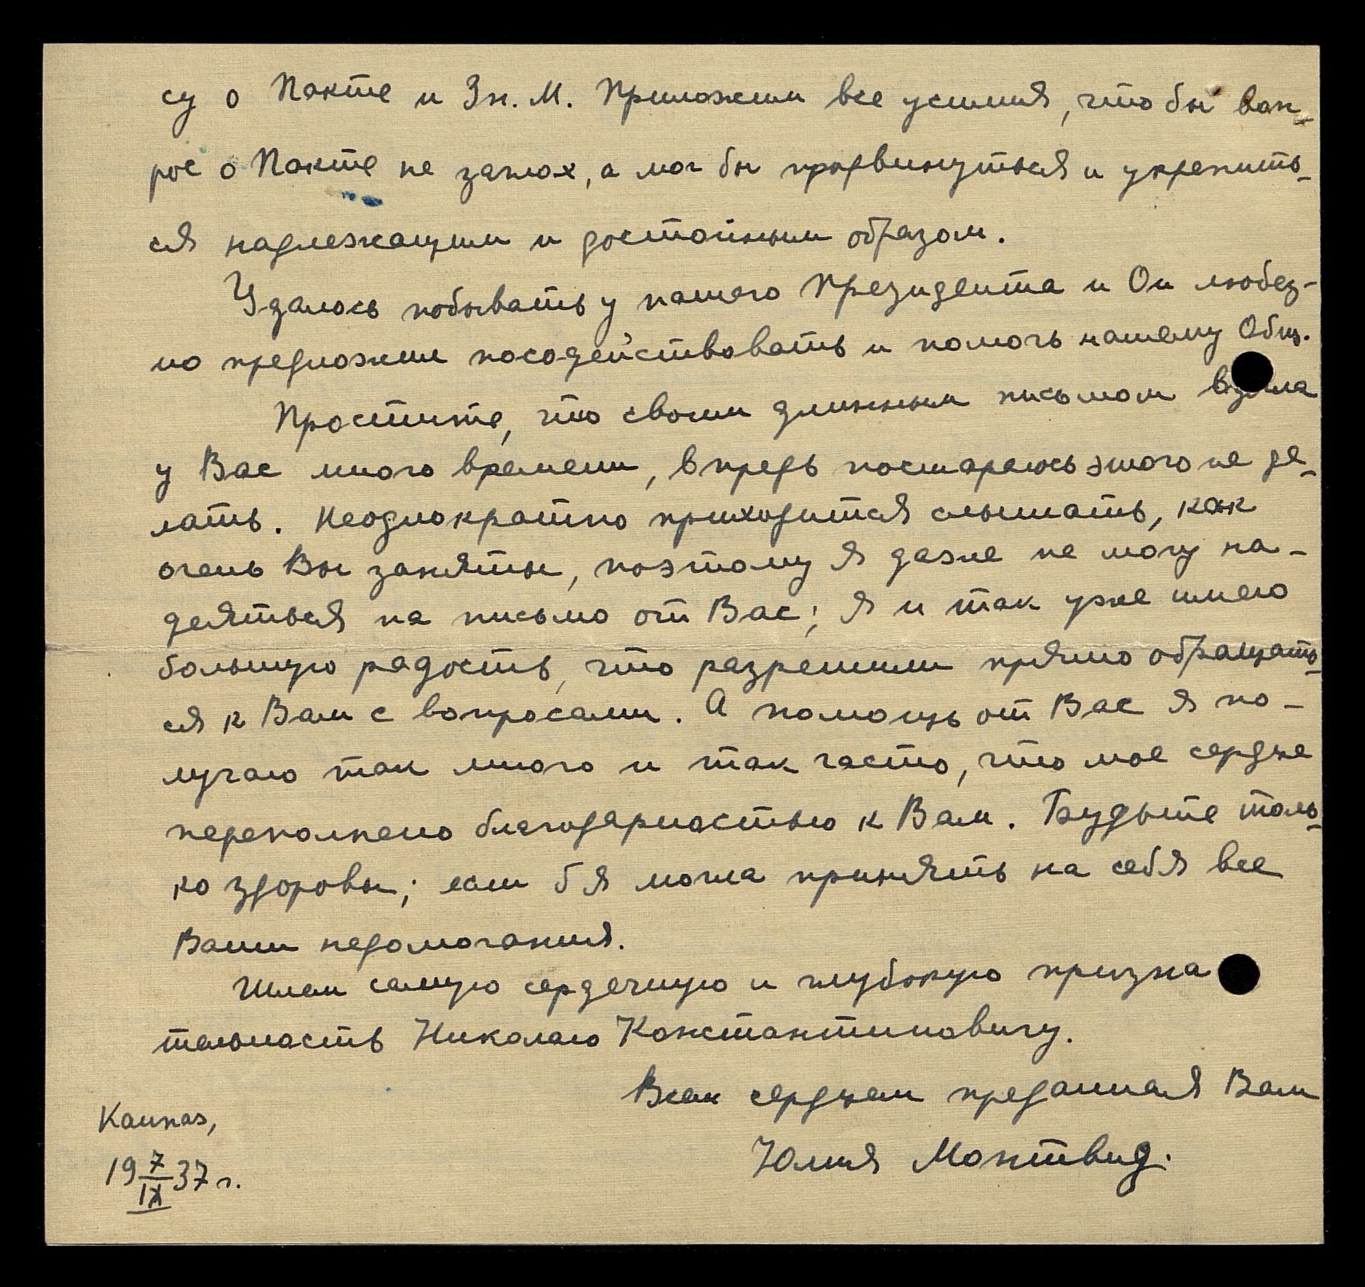 су о Пакте и Зн. М. Приложим все усилия, что бы воп-
рос о Пакте не заглох, а мог бы продвинуться и укрепить-
ся надлежащим и достойным образом.
Удалось побывать у нашего Президента и Он любез-
но предложил посодействовать и помочь нашему Общ.
Простите, что своим длинным письмом взяла
у Вас много времени, впредь постараюсь этого не де-
лать. Неоднократно приходится слышать, как
очень Вы заняты, поэтому я даже не могу на-
деяться на письмо от Вас; я и так уже имею
большую радость, что разрешили прямо обращать-
ся к Вам с вопросами. А помощь от Вас я по-
лучаю так много и так часто, что мое сердце
переполнено благодарностью к Вам. Будьте толь-
ко здоровы; если б я могла принять на себя все
Ваши недомогания.
Шлем самую сердечную и глубокую призна
тельность Николаю Константиновичу.
Всем сердцем преданная Вам
Юлия Монтвид.
Каунас,
19 7/IX 37 г.